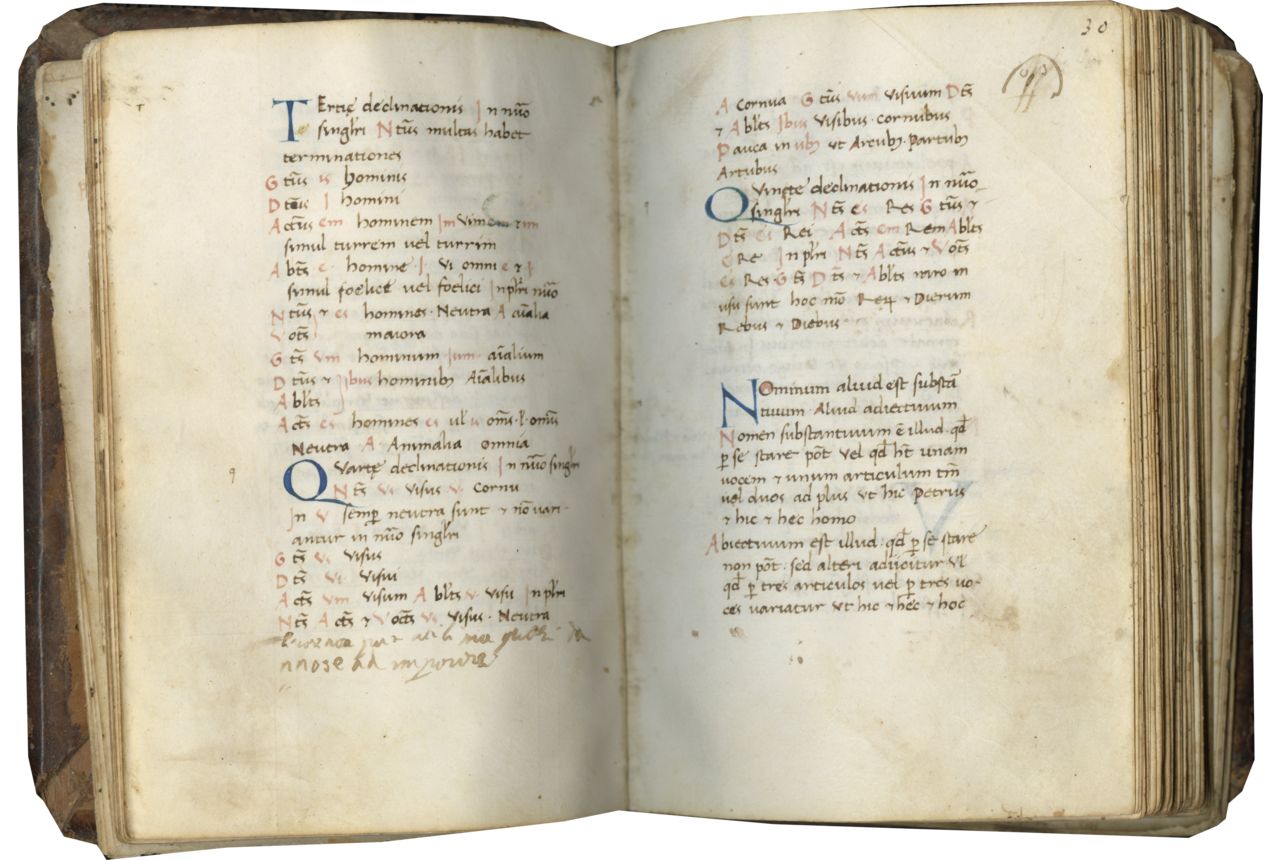 Tertię declinationis In nũo
singlr̃i Ntũs multas habet
terminationes
G tũs is hominis
D tũs I homini
Actũs em hominem Im vim em & im
simul turrem vel turrim
A bt̃s e homine I vi omni e & i
simul foelice vel foelici In plr̃i nũo
N tũs & es homines · Neutra A aĩalia
Vot̃s maiora
G t̃s vm hominum · ium · aĩalium
D tũs & Ablt̃s ibus hominibꝫ Aĩalibus
Act̃s es homines es vl̃ is om̃s · l · om̃is
Neutra · A · Animalia omnia
Quartę declinationis In nũo singlr̃i
Nt̃s Vs Visus V Cornu
In V semp̃ neutra sunt & nõ vari-
antur in nũo singlr̃i
G t̃s Vs Visus
D t̃s Vi Visui
Act̃s vm visum Ablt̃s V visu In plr̃i
Nt̃s Act̃s & Voct̃s Vs Visus · Neutra
30
A Cornua G tũs Vum Visuum Dt̃s
& Ablt̃s Ibus Visibus · cornubus
Pauca in ubꝫ ut Arcubꝫ · Partubꝫ
Artubus
Quintę declinationis In nũo
singlr̃i Nt̃s es Res Gtũs &
Dt̃s Ei Rei Act̃s em Rem Ablt̃s
E Re In plr̃i Nt̃s Actũs & Voct̃s
es Res Gt̃s Dt̃s & Ablt̃s raro in
usu sunt hoc mõ Reꝝ & Dierum
Rebus & Diebus
NOminum aliud est substã
tiuum · Aliud adiectiuum
Nomen substantiuum ẽ illud · qđ
ꝑ se stare põt vel qđ ht̃ unam
vocem & unum articulum tm̃
vel duos ad plus ut hic Petrus
& hic & hęc homo
Adiectiuum est illud : qđ ꝑ se stare
non põt : sed alteri adijcitur Vl̃
qđ ꝑ tres articulos vel ꝑ tres vo-
ces variatur ut hic & hęc & hoc